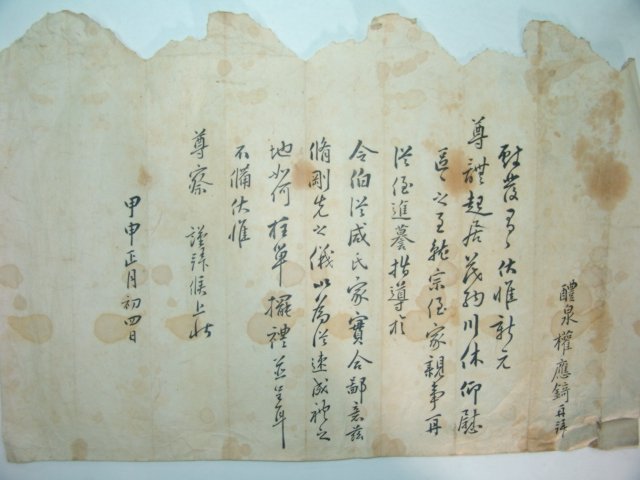 醴泉權應錡再拜
伏惟新元
尊體起居茂納川休仰慰
區區之至就宗侄家親事再
從侄進書指導於
令伯從咸氏家實合鄙意玆
脩剛先之儀以爲從速成禮之
地如何柱單擇禮並呈耳
不備伏惟
尊察 謹拜候上狀
甲申正月初四日